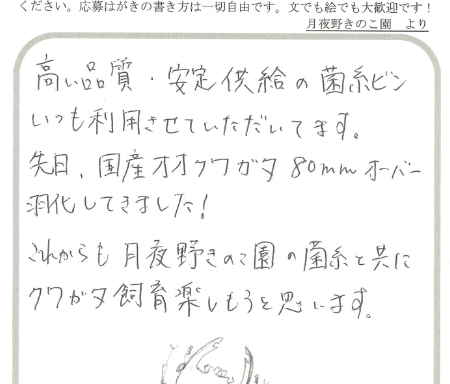 ください。応募はがきの書き方は一切自由です。文でも絵でも大歓迎です！
月夜野きのこ園　より
高い品質・安定供給の菌糸ビン
いつも利用させていただいてます。
先日、国産オオクワガタ 80mmオーバー
羽化してきました！
これからも月夜野きのこ園の菌糸と共に
クワガタ飼育楽しもうと思います。